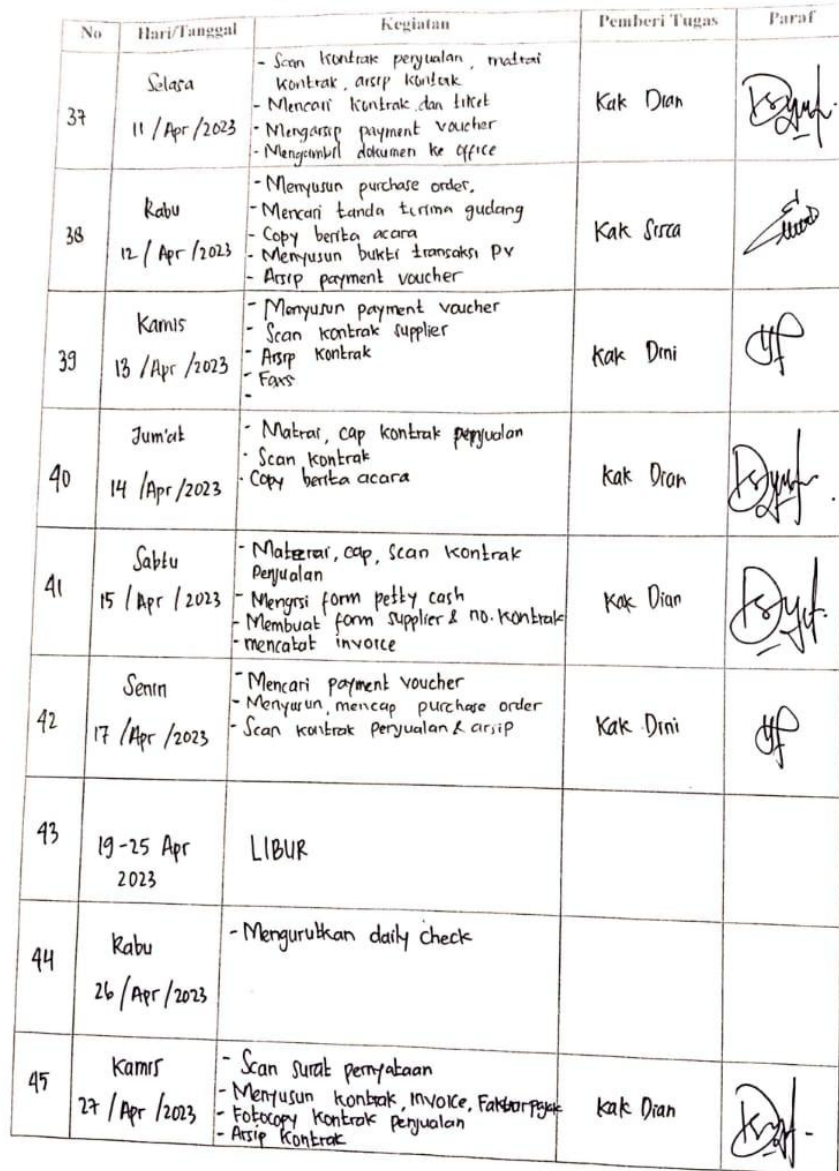 No Hari/Tanggal Kegiatan Pemberi Tugas Paraf
37
Selasa
11 / Apr / 2023
- Scan kontrak penjualan, matrai
kontrak, arsip kontrak
- Mencari kontrak dan tiket
- Mengarsip payment voucher
- Mengambil dokumen ke office
Kak Dian
38
Rabu
12 / Apr / 2023
- Menyusun purchase order,
- Mencari tanda terima gudang
- Copy berita acara
- Menyusun bukti transaksi PV
- Arsip payment voucher
Kak Sisca
39
Kamis
13 / Apr / 2023
- Menyusun payment voucher
- Scan kontrak supplier
- Arsip kontrak
- Faxs
-
Kak Dini
40
Jum'at
14 / Apr / 2023
- Matrai, cap kontrak penjualan
- Scan kontrak
- Copy berita acara
Kak Dian
41
Sabtu
15 / Apr / 2023
- Materai, cap, scan kontrak
Penjualan
- Mengisi form petty cash
- Membuat form supplier & no. kontrak
- mencatat invoice
Kak Dian
42
Senin
17 / Apr / 2023
- Mencari payment voucher
- Menyusun, mencap purchase order
- Scan kontrak penjualan & arsip
Kak Dini
43
19-25 Apr
2023
LIBUR
44
Rabu
26 / Apr / 2023
- Mengurutkan daily check
45
Kamis
27 / Apr / 2023
- Scan surat pernyataan
- Menyusun kontrak, invoice, Faktur pajak
- Fotocopy kontrak penjualan
- Arsip kontrak
Kak Dian